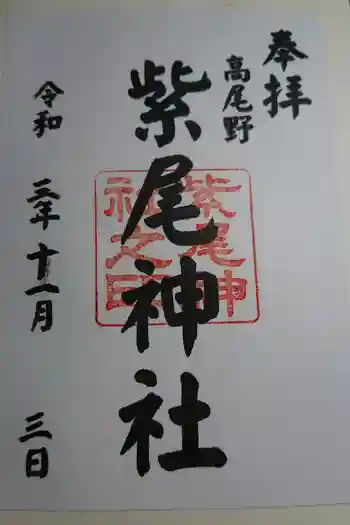 奉拝
高尾野
紫尾神社
紫尾神社之印
令和 三年 十一月 三日